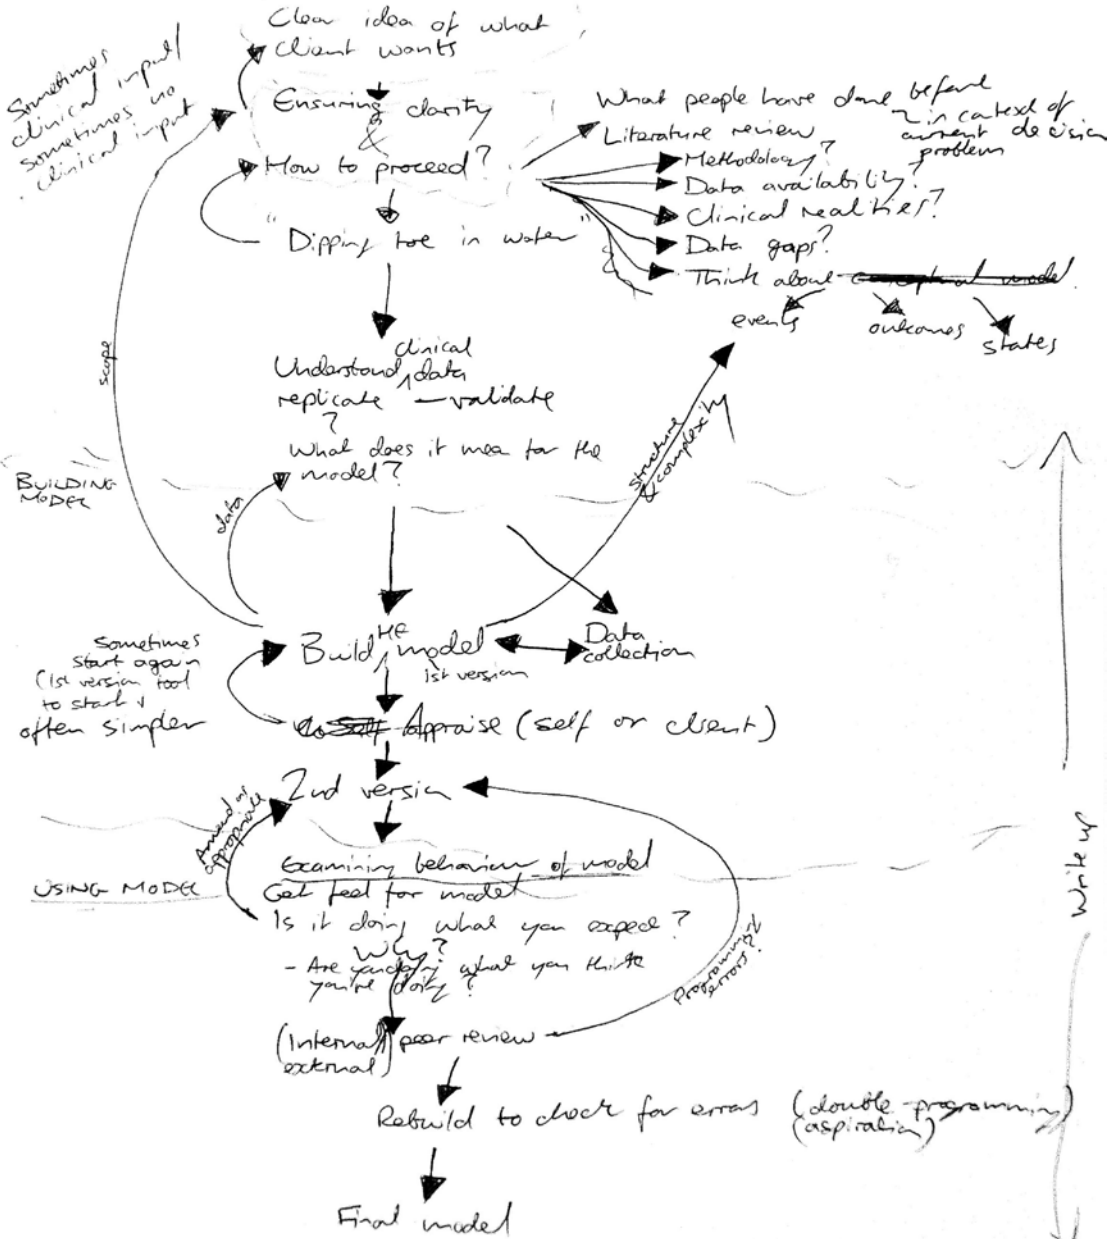 Clear idea of what
client wants
Sometimes
clinical input/
sometimes no
clinical input
Ensuring clarity
&
How to proceed?
"Dipping toe in water"
What people have done before
in context of
current decision
problem
Literature review
Methodology?
Data availability?
Clinical realities?
Data gaps?
Think about
events
outcomes
states
scope
clinical
Understand data
replicate – validate
?
What does it mean for the
model?
structure
& complexity
BUILDING
MODEL
data
HE
Build model
1st version
Data
collection
Sometimes
start again
(1st version tool
to start
often simpler
Appraise (self or client)
2nd version
Amend as
appropriate
Examining behaviour of model
USING MODEL
Get feel for model
Is it doing what you expect?
Why?
- Are you doing what you think
you're doing?
Programming
errors?
(Internal/
external)
peer review
Rebuild to check for errors
(double-programming)
(aspiration)
Final model
Write up